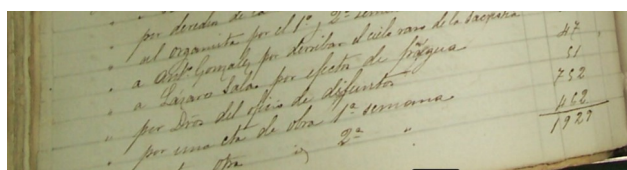 " por derecho de la
" al organista por el 1º y 2º sem
" a Antº Gonzalez por derribar el cielo raso de la Sacristia
" a Lazaro Salas por efectos de fragua 47
" por Dros del oficio de difuntos 51
" por una cta de obra 1ª semana 752
otra id 2ª " 462
1929